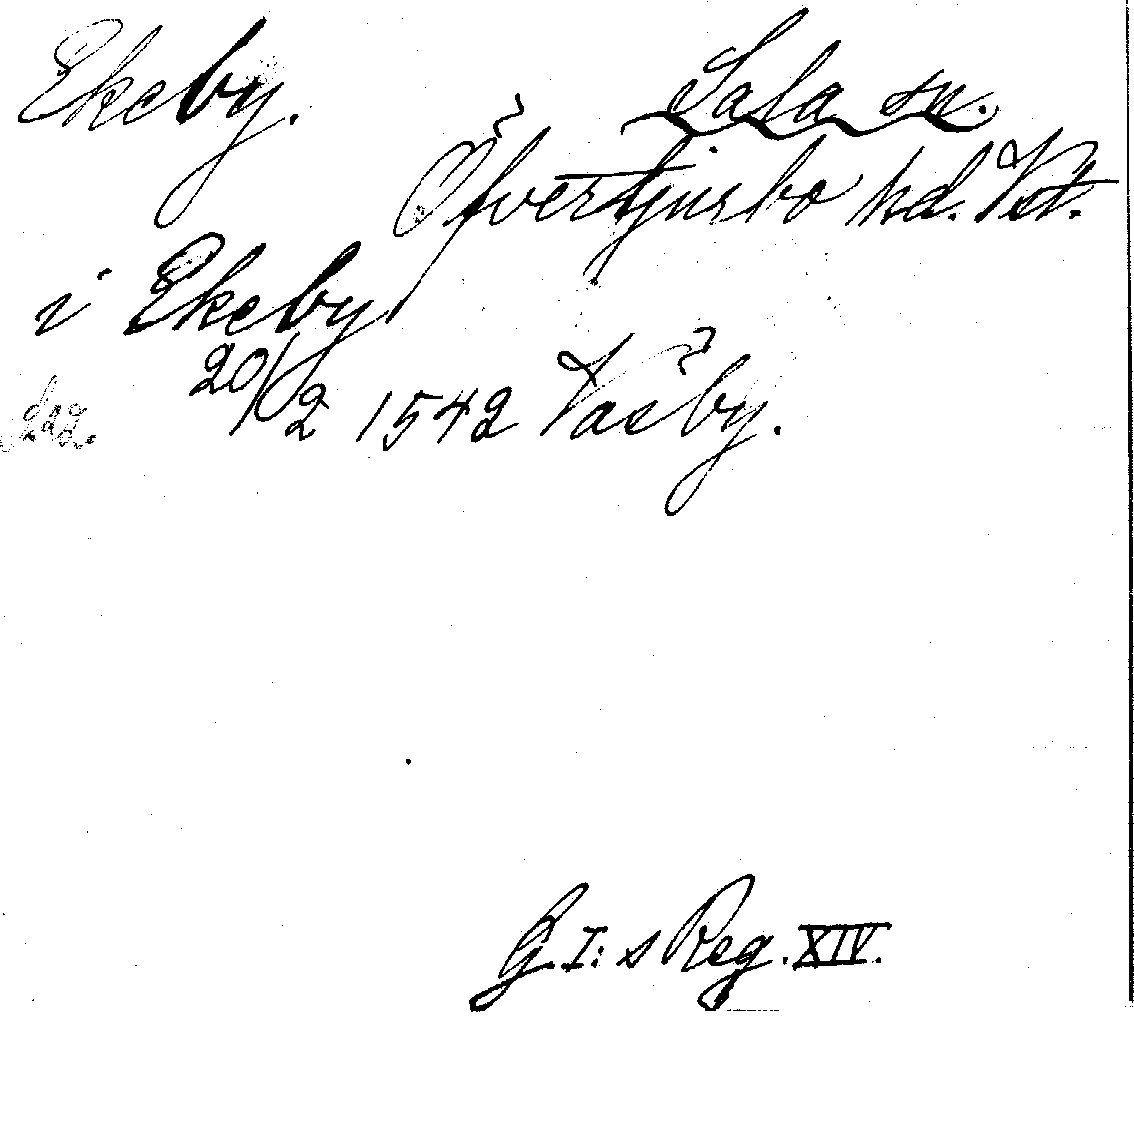 Ekeby. Sala sn.
Øfvertjurbo hd. Vst.
i Ekeby
20/2 1542 Väsby.
G. I: s Reg. XIV.